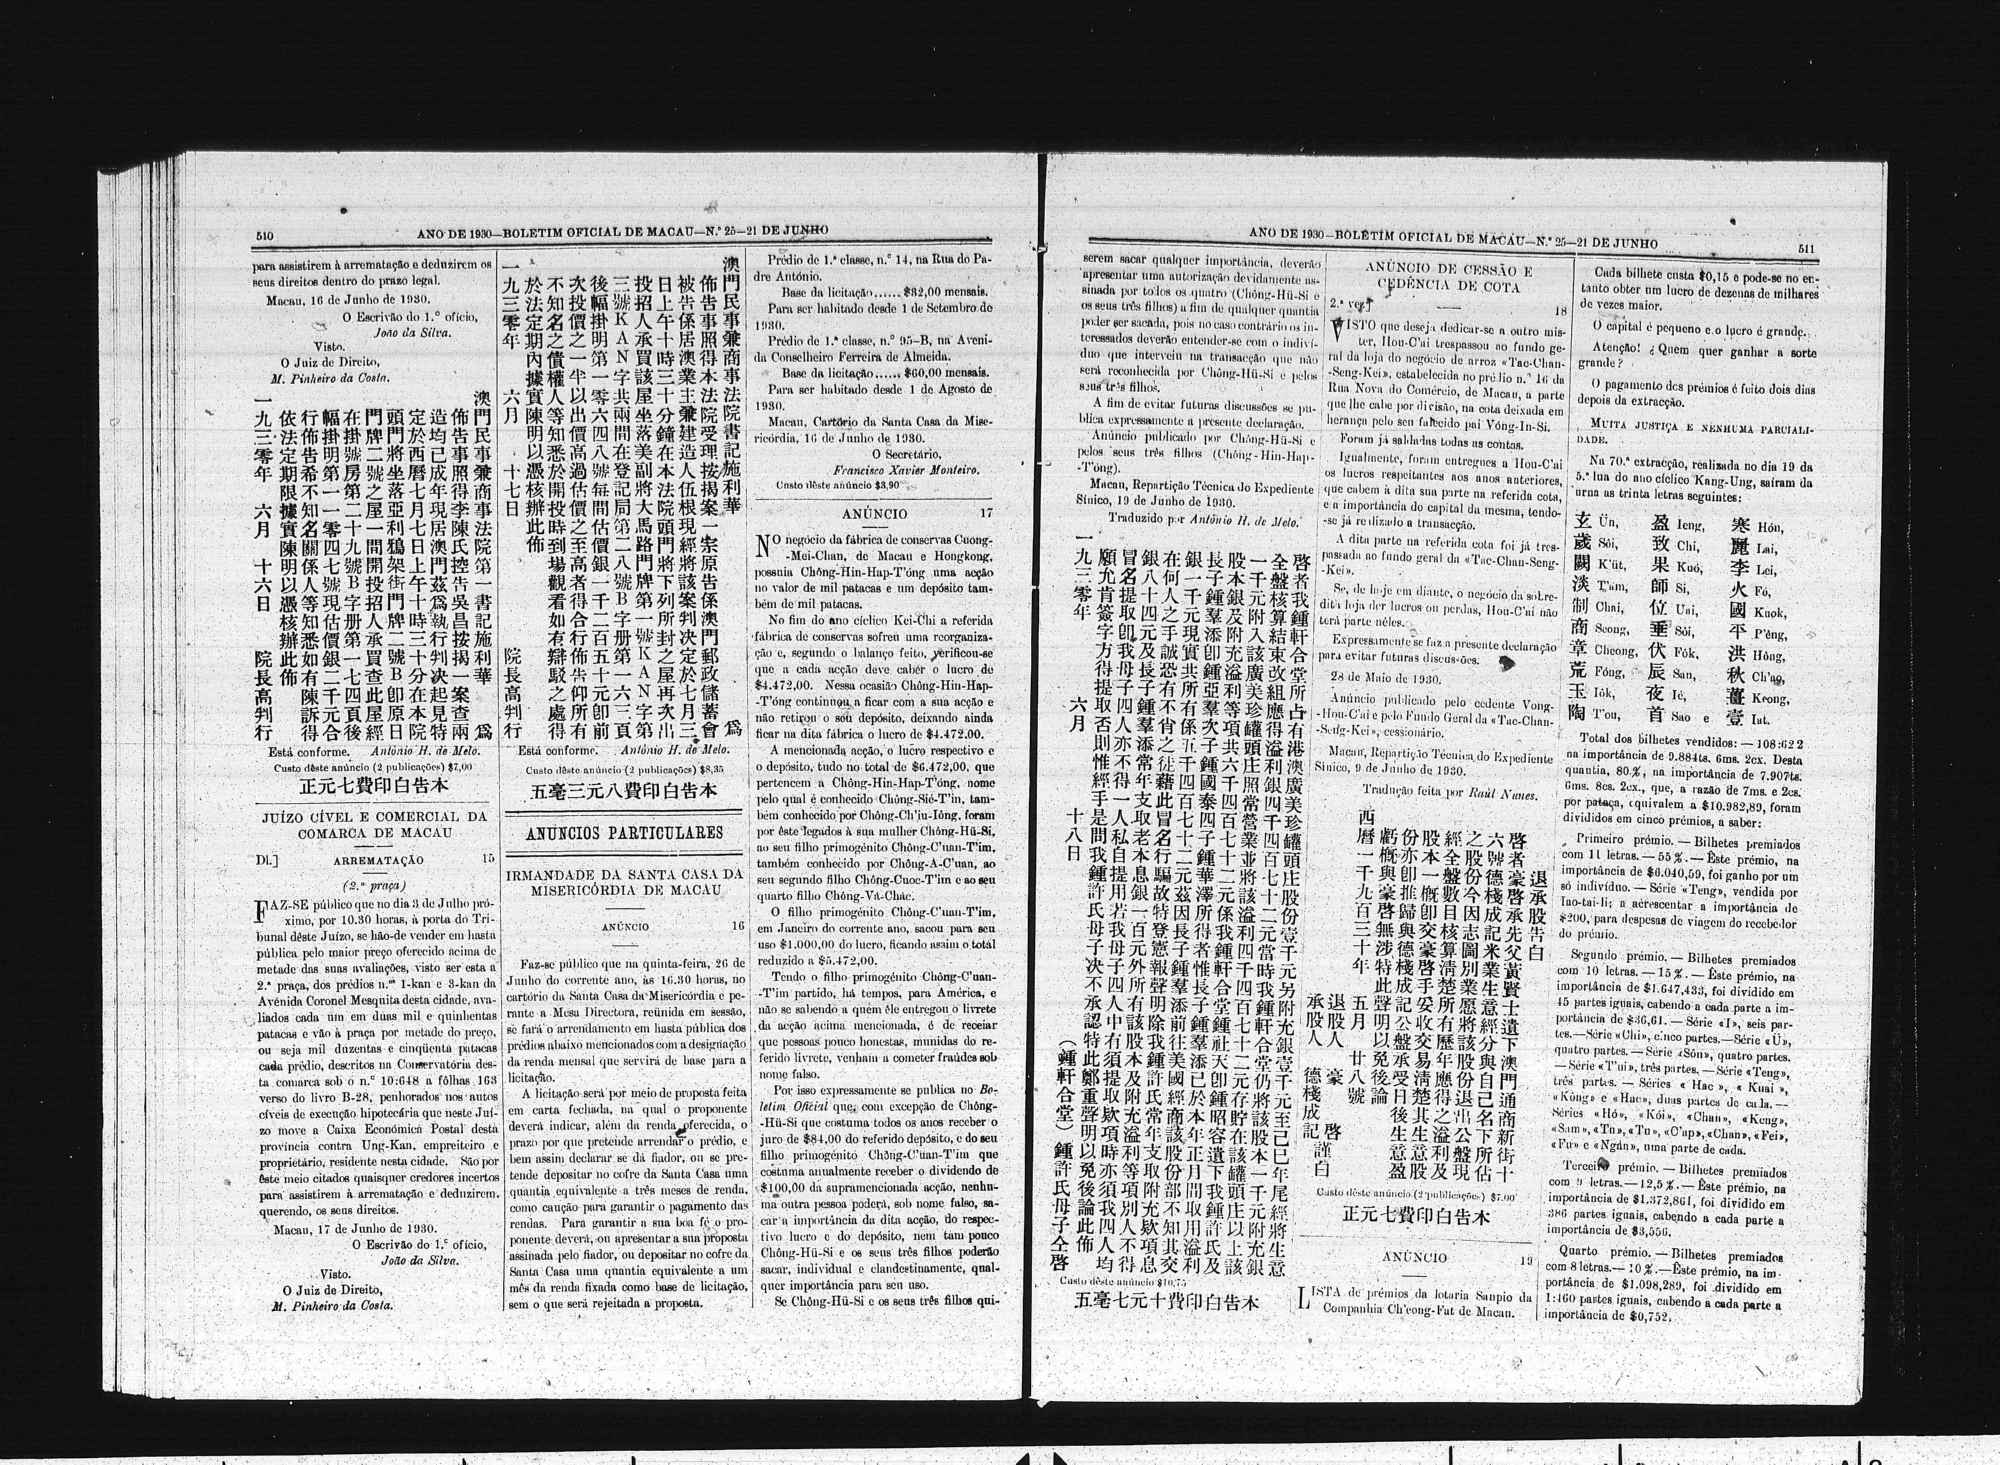 510
ANO DE 1930—BOLETIM OFICIAL DE MACAU—N.º 25—21 DE JUNHO
para assistirem à arrematação e deduzirem os
seus direitos dentro do prazo legal.
Macau, 16 de Junho de 1930.
O Escrivão do 1.º ofício,
João da Silva.
Visto.
O Juiz de Direito,
M. Pinheiro da Costa.
澳門民事兼商事法院第一書記施利華 爲
佈告事照得李陳氏控告吳昌按揭一案查兩
造均已成年現居澳門茲爲執行判决起見特
定於西曆七月七日上午十時三十分在本院
頭門將坐落亞利鴉架街門牌二號B卽原日
門牌二號之屋一間開投招人承買查此屋經
在掛號房第二十九號B字册第一七四頁後
幅掛明第一一零四七號現估價銀二千元合
行佈告希不知名關係人等知悉如有陳訴得
依法定期限據實陳明以憑核辦此佈
一九三零年 六月 十六日 院長高判行
Está conforme. António H. de Melo.
Custo dêste anúncio (2 publicações) $7,00
正元七費印白告本
JUÍZO CÍVEL E COMERCIAL DA
COMARCA DE MACAU
Dl.] ARREMATAÇÃO 15
(2.ª praça)
FAZ-SE público que no dia 3 de Julho pró-
ximo, por 10.30 horas, à porta do Tri-
bunal dêste Juízo, se hão-de vender em hasta
pública pelo maior preço oferecido acima de
metade das suas avaliações, visto ser esta a
2.ª praça, dos prédios n.os 1-kan e 3-kan da
Avenida Coronel Mesquita desta cidade, ava-
liados cada um em duas mil e quinhentas
patacas e vão à praça por metade do preço,
ou seja mil duzentas e cinqüenta patacas
cada prédio, descritos na Conservatória des-
ta comarca sob o n.º 10:648 a fôlhas 163
verso do livro B-28, penhorados nos autos
cíveis de execução hipotecária que neste Juí-
zo move a Caixa Económica Postal desta
província contra Ung-Kan, empreiteiro e
proprietário, residente nesta cidade. São por
êste meio citados quaisquer credores incertos
para assistirem à arrematação e deduzirem,
querendo, os seus direitos.
Macau, 17 de Junho de 1930.
O Escrivão do 1.º ofício,
João da Silva.
Visto.
O Juiz de Direito,
M. Pinheiro da Costa.
澳門民事兼商事法院書記施利華 爲
佈告事照得本法院受理按揭案一宗原告係澳門郵政儲蓄會
被告係居澳業主兼建造人伍根現經將該案判决定於七月三
日上午十時三十分鐘在本法院頭門將下列所封之屋再次出
投招人承買該屋坐落美副將大馬路門牌第一號KAN字第
三號KAN字共兩間在登記局第二八號B字册第一六三頁
後幅掛明第一零六四八號每間估價銀一千二百五十元卽前
次投價之一半以出價高過估價之至高者得合行佈告仰所有
不知名之債權人等知悉於開投時到場觀看如有辯駁之處得
於法定期內據實陳明以憑核辦此佈
一九三零年 六月 十七日 院長高判行
Está conforme. António H. de Melo.
Custo dêste anúncio (2 publicações) $8,35
五毫三元八費印白告本
ANÚNCIOS PARTICULARES
IRMANDADE DA SANTA CASA DA
MISERICÓRDIA DE MACAU
ANÚNCIO 16
Faz-se público que na quinta-feira, 26 de
Junho do corrente ano, às 16.30 horas, no
cartório da Santa Casa da Misericórdia e pe-
rante a Mesa Directora, reünida em sessão,
se fará o arrendamento em hasta pública dos
prédios abaixo mencionados com a designação
da renda mensal que servirá de base para a
licitação.
A licitação será por meio de proposta feita
em carta fechada, na qual o proponente
deverá indicar, além da renda oferecida, o
prazo por que pretende arrendar o prédio, e
bem assim declarar se dá fiador, ou se pre-
tende depositar no cofre da Santa Casa uma
quantia equivalente a três meses de renda,
como caução para garantir o pagamento das
rendas. Para garantir a sua boa fé o pro-
ponente deverá, ou apresentar a sua proposta
assinada pelo fiador, ou depositar no cofre da
Santa Casa uma quantia equivalente a um
mês da renda fixada como base de licitação,
sem o que será rejeitada a proposta.
Prédio de 1.ª classe, n.º 14, na Rua do Pa-
dre António.
Base da licitação...... $32,00 mensais.
Para ser habitado desde 1 de Setembro de
1930.
Prédio de 1.ª classe, n.º 95-B, na Aveni-
da Conselheiro Ferreira de Almeida.
Base da licitação...... $60,00 mensais.
Para ser habitado desde 1 de Agosto de
1930.
Macau, Cartório da Santa Casa da Mise-
ricórdia, 16 de Junho de 1930.
O Secretário,
Francisco Xavier Monteiro.
Custo dêste anúncio $3,90
ANÚNCIO 17
NO negócio da fábrica de conservas Cuong-
-Mei-Chan, de Macau e Hongkong,
possuía Chông-Hin-Hap-T'óng uma acção
no valor de mil patacas e um depósito tam-
bém de mil patacas.
No fim do ano cíclico Kei-Chi a referida
fábrica de conservas sofreu uma reorganiza-
ção e, segundo o balanço feito, verificou-se
que a cada acção deve caber o lucro de
$4.472,00. Nessa ocasião Chông-Hin-Hap-
-T'óng continuou a ficar com a sua acção e
não retirou o seu depósito, deixando ainda
ficar na dita fábrica o lucro de $4.472,00.
A mencionada acção, o lucro respectivo e
o depósito, tudo no total de $6.472,00, que
pertencem a Chông-Hin-Hap-T'óng, nome
pelo qual é conhecido Chông-Sié-T'in, tam-
bém conhecido por Chông-Ch'iu-Iông, foram
por êste legados à sua mulher Chông-Hü-Si,
ao seu filho primogénito Chông-C'uan-T'im,
também conhecido por Chông-A-C'uan, ao
seu segundo filho Chông-Cuoc-T'im e ao seu
quarto filho Chông-Vá-Chác.
O filho primogénito Chông-C'uan-T'im,
em Janeiro do corrente ano, sacou para seu
uso $1.000,00 do lucro, ficando assim o total
reduzido a $5.472,00.
Tendo o filho primogénito Chông-C'uan-
-T'im partido, há tempos, para América, e
não se sabendo a quem êle entregou o livrete
da acção acima mencionada, é de recear
que pessoas pouco honestas, munidas do re-
ferido livrete, venham a cometer fraúdes sob
nome falso.
Por isso expressamente se publica no Bo-
letim Oficial que, com excepção de Chông-
-Hü-Si que costuma todos os anos receber o
juro de $84,00 do referido depósito, e do seu
filho primogénito Chông-C'uan-T'im que
costuma anualmente receber o dividendo de
$100,00 da supramencionada acção, nenhu-
ma outra pessoa poderá, sob nome falso, sa-
car a importância da dita acção, do respec-
tivo lucro e do depósito, nem tam pouco
Chông-Hü-Si e os seus três filhos poderão
sacar, individual e clandestinamente, qual-
quer importância para seu uso.
Se Chông-Hü-Si e os seus três filhos qui-
ANO DE 1930—BOLETIM OFICIAL DE MACAU—N.º 25—21 DE JUNHO
511
serem sacar qualquer importância, deverão
apresentar uma autorização devidamente as-
sinada por todos os quatro (Chông-Hü-Si e
os seus três filhos) a fim de qualquer quantia
poder ser sacada, pois no caso contrário os in-
teressados deverão entender-se com o indiví-
duo que interveiu na transacção que não
será reconhecida por Chông-Hü-Si e pelos
seus três filhos.
A fim de evitar futuras discussões se pu-
blica expressamente a presente declaração.
Anúncio publicado por Chông-Hü-Si e
pelos seus três filhos (Chông-Hin-Hap-
-T'óng).
Macau, Repartição Técnica do Expediente
Sínico, 19 de Junho de 1930.
Traduzido por António H. de Melo.
啓者我鍾軒合堂所占有港澳廣美珍罐頭庄股份壹千元另附充銀壹千元至己巳年尾經將生意
全盤核算結束改組應得溢利銀四千四百七十二元當時我鍾軒合堂仍將該股本一千元附充銀
一千元附入該廣美珍罐頭庄照常營業並將該溢利四千四百七十二元存貯在該罐頭庄以上該
股本銀及附充溢利等項共六千四百七十二元係我鍾軒合堂鍾祉天卽鍾昭容遺下我鍾許氏及
長子鍾羣添卽鍾亞羣次子鍾國泰四子鍾華澤所得者惟長子鍾羣添已於本年正月間取用溢利
銀一千元現實共所有係五千四百七十二元茲因長子鍾羣添前往美國經商該股份部不知其交
在何人之手誠恐有不肖之徒藉此冒名行騙故特登憲報聲明除我鍾許氏常年支取附充欵項息
銀八十四元及長子鍾羣添常年支取老本息銀一百元外所有該股本及附充溢利等項別人不得
冒名提取卽我母子四人亦不得一人私自提用若我母子四人中有須提取欵項時亦須我四人均
願允肯簽字方得提取否則惟經手是問我鍾許氏母子决不承認特此鄭重聲明以免後論此佈
一九三零年 六月 十八日 (鍾軒合堂)鍾許氏母子仝啓
Custo dêste anúncio $10,75
五毫七元十費印白告本
ANÚNCIO DE CESSÃO E
CEDÊNCIA DE COTA
2.ª vez] 18
VISTO que deseja dedicar-se a outro mis-
ter, Hou-C'ai trespassou ao fundo ge-
ral da loja do negócio de arroz «Tac-Chan-
-Seng-Kei», estabelecida no prédio n.º 16 da
Rua Nova do Comércio, de Macau, a parte
que lhe cabe por divisão, na cota deixada em
herança pelo seu falecido pai Vóng-In-Si.
Foram já saldadas todas as contas.
Igualmente, foram entregues a Hou-C'ai
os lucros respeitantes aos anos anteriores,
que cabem à dita sua parte na referida cota,
e a importância do capital da mesma, tendo-
-se já realizado a transacção.
A dita parte na referida cota foi já tres-
passada ao fundo geral da «Tac-Chan-Seng-
-Kei».
Se, de hoje em diante, o negócio da sobre-
dita loja der lucros ou perdas, Hou-C'ai não
terá parte nêles.
Expressamente se faz a presente declaração
para evitar futuras discussões.
28 de Maio de 1930.
Anúncio publicado pelo cedente Vong-
-Hou-C'ai e pelo Fundo Geral da «Tac-Chan-
-Seng-Kei», cessionário.
Macau, Repartição Técnica do Expediente
Sínico, 9 de Junho de 1930.
Tradução feita por Raúl Nunes.
退承股告白
啓者豪啓承先父黃賢士遺下澳門通商新街十
六號德棧成記米業生意經分與自己名下所佔
之股份今因志圖別業愿將該股份退出公盤現
經全盤數目核算淸楚所有歷年應得之溢利及
股本一概卽交豪啓手妥收交易淸楚其生意股
份亦卽推歸與德棧成記公盤承受日後生意盈
虧概與豪啓無涉特此聲明以免後論
西曆一千九百三十年 五月 廿八號
退股人 豪 啓謹白
承股人 德棧成記
Custo dêste anúncio (2 publicações) $7,00
正元七費印白告本
ANÚNCIO 19
LISTA de prémios da lotaria Sanpio da
Companhia Ch'eong-Fat de Macau.
Cada bilhete custa $0,15 e pode-se no en-
tanto obter um lucro de dezenas de milhares
de vezes maior.
O capital é pequeno e o lucro é grande.
Atenção! ¿Quem quer ganhar a sorte
grande?
O pagamento dos prémios é feito dois dias
depois da extracção.
MUITA JUSTIÇA E NENHUMA PARCIALI-
DADE.
Na 70.ª extracção, realizada no dia 19 da
5.ª lua do ano cíclico Kang-Ung, saíram da
urna as trinta letras seguintes:
玄 Ün, 盈 Ieng, 寒 Hón,
歲 Sôi, 致 Chi, 麗 Lai,
闕 K'üt, 果 Kuó, 李 Lei,
淡 T'am, 師 Si, 火 Fó,
制 Chai, 位 Uai, 國 Kuok,
商 Seong, 垂 Sôi, 平 P'êng,
章 Cheong, 伏 Fók, 洪 Hông,
荒 Fóng, 辰 San, 秋 Ch'ao,
玉 Iók, 夜 Ié, 薑 Keong,
陶 T'ou, 首 Sao e 壹 Iat.
Total dos bilhetes vendidos: — 108:622
na importância de 9.884ts. 6ms. 2cx. Desta
quantia, 80%, na importância de 7.907ts.
6ms. 8cs. 2cx., que, a razão de 7ms. e 2cs.
por pataca, equivalem a $10.982,89, foram
divididos em cinco prémios, a saber:
Primeiro prémio. — Bilhetes premiados
com 11 letras. — 55%. — Êste prémio, na
importância de $6.040,59, foi ganho por um
só indivíduo. — Série «Teng», vendida por
Iao-tai-li; a acrescentar a importância de
$200, para despesas de viagem do recebedor
do prémio.
Segundo prémio. — Bilhetes premiados
com 10 letras. — 15%. — Êste prémio, na
importância de $1.647,433, foi dividido em
45 partes iguais, cabendo a cada parte a im-
portância de $36,61. — Série «I», seis par-
tes.—Série «Chi», cinco partes.—Série «Ü»,
quatro partes. — Série «Són», quatro partes.
— Série «T'ui», três partes. — Série «Teng»,
três partes. — Séries «Hac», «Kuai»,
«Kông» e «Hac», duas partes de cada. —
Séries «Hó», «Kói», «Chan», «Keng»,
«Sam», «Tn», «Tu», «C'ap», «Chan», «Fei»,
«Fu» e «Ngán», uma parte de cada.
Terceiro prémio. — Bilhetes premiados
com 9 letras. — 12,5%. — Êste prémio, na
importância de $1.372,861, foi dividido em
386 partes iguais, cabendo a cada parte a
importância de $3,556.
Quarto prémio. — Bilhetes premiados
com 8 letras. — 10%. — Êste prémio, na im-
portância de $1.098,289, foi dividido em
1:460 partes iguais, cabendo a cada parte a
importância de $0,752.